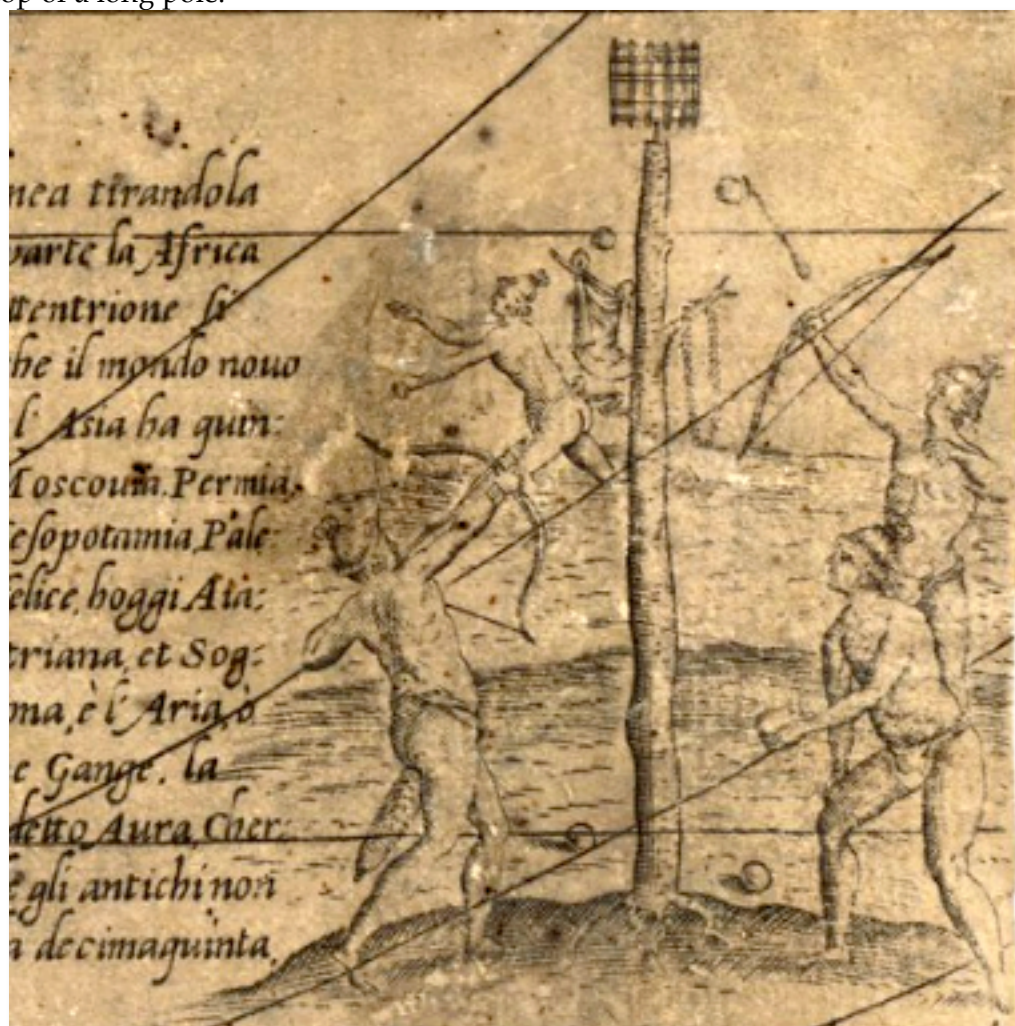 top of a long pole.
nea tirandola
parte la Africa
ttentrione si
he il mondo nouo
l' Asia ha quin:
Moscouia. Permia,
esopotamia, Pale
elice, hoggi Aia:
triana, et Sog:
ma, è l' Aria, ò
e Gange. la
detto Aura, Cher:
e gli antichi non
a decimaquinta,